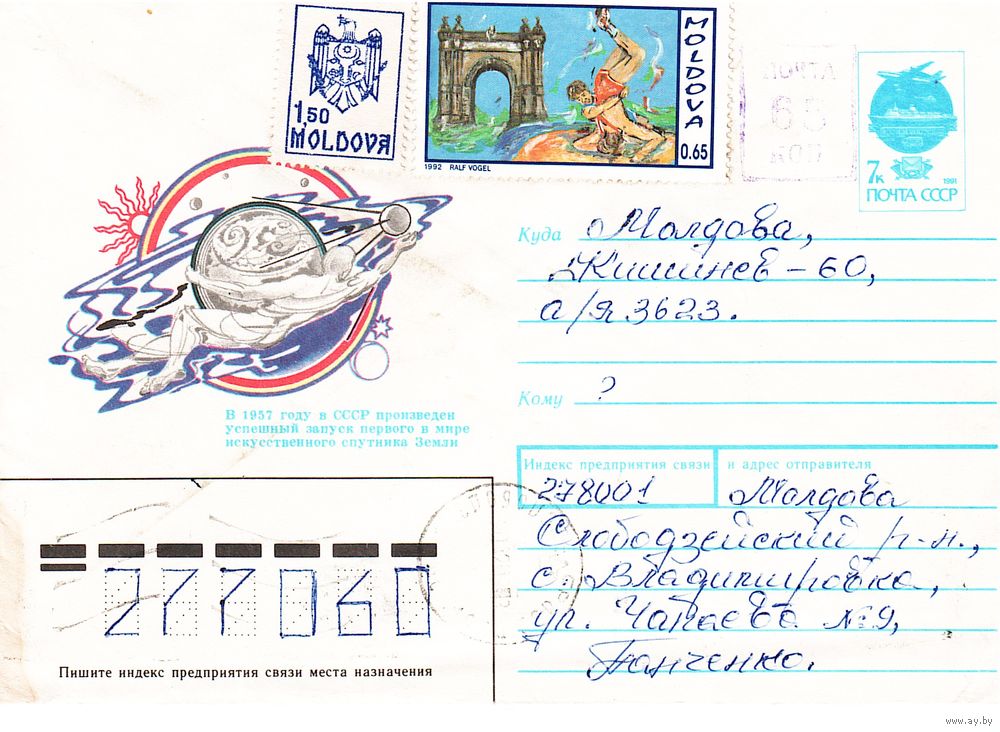 1,50
MOLDOVA
MOLDOVA
0.65
1992 RALF VOGEL
ПОЧТА
65
КОП
7к
1991
ПОЧТА СССР
Куда Молдова,
Кишинев-60,
а/я 3623.
Кому ?
В 1957 году в СССР произведен
успешный запуск первого в мире
искусственного спутника Земли
Индекс предприятия связи и адрес отправителя
278001 Молдова
Слободзейский р-н.,
с. Владимировка,
ул. Чапаева №9,
Панченко.
277060
Пишите индекс предприятия связи места назначения
www.ay.by